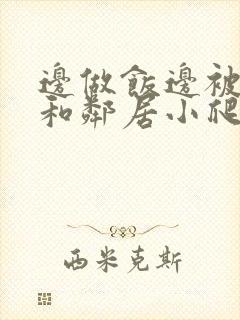 邊做飯邊被
和鄰居小爬
西米克斯